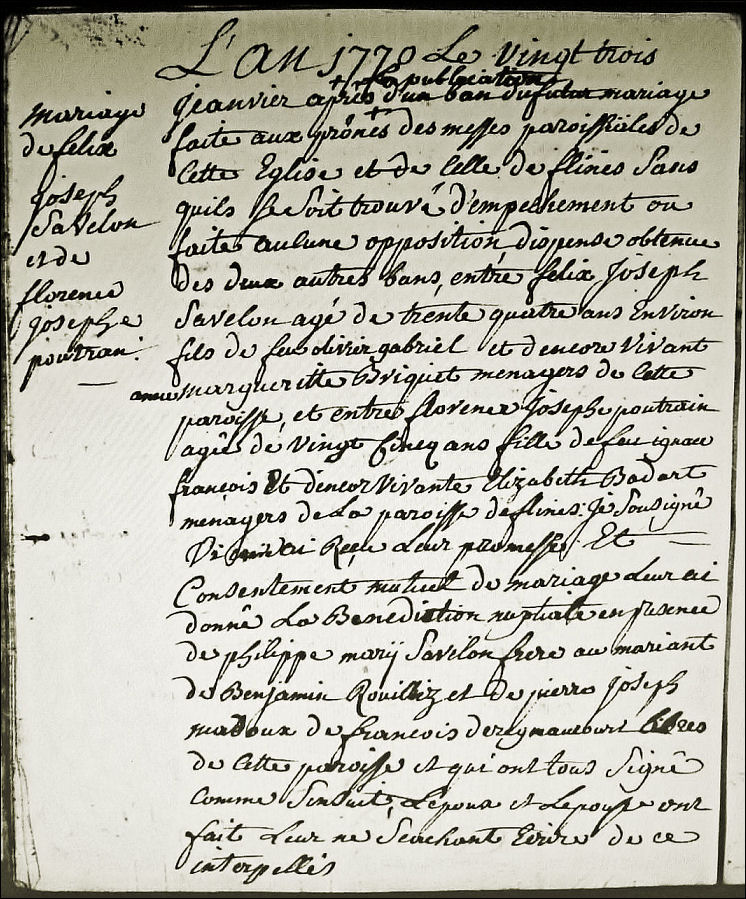 L'an 1770 Le vingt trois
la publication
jeanvier après d'un ban du futur mariage
faite aux prônes des messes paroissiales de
Cette Eglise et de Celle de flines Sans
quils se Soit trouvé d'empechement ou
faite auCune opposition, dispense obtenue
Des deux autres bans, entre felix Joseph
Savelon agé de trente quatre ans Environ
fils de feu olivier gabriel et dencore vivant
anne margueritte Briquet menagers de Cette
paroisse, et entre florence Josephe poutrain
agée de vingt Cincq ans fille de feu ignace
françois Et d'encor vivante Elizabeth Badart
menagers de La paroisse de flines. Je Sousigné
Reçu Leur promesse Et
Consentement mutuel de mariage Leur ai
donné La Benediction nuptiale en presence
de philippe marij Savelon frere au mariant
de Benjamin Rouillez et de pierre Joseph
madoux de francois
de Cette paroisse et qui ont tous Signé
Comme Sensuit, Lepoux et Lepouse ont
fait Leur ne Scachant Ecrire de ce
interpellés
mariage
de felix
joseph
Savelon
et de
florence
josephe
poutrain.